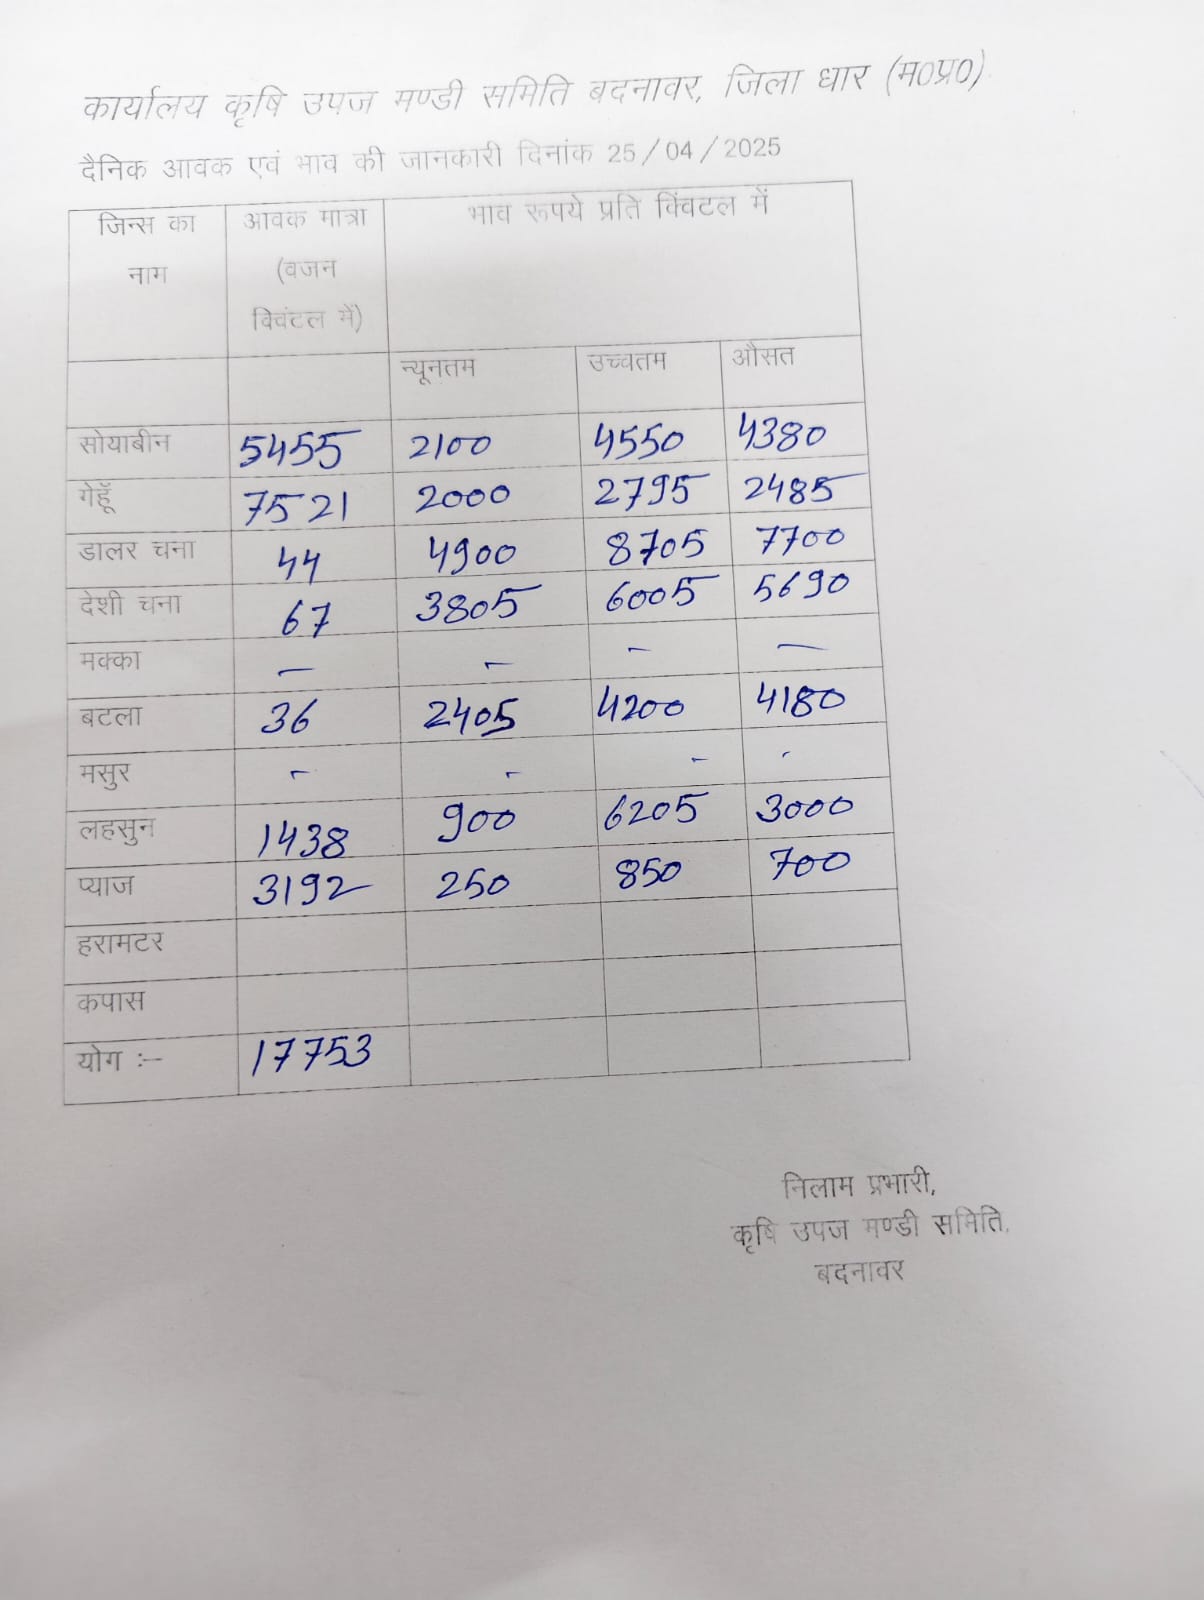 कार्यालय कृषि उपज मण्डी समिति बदनावर, जिला धार (म0प्र0)
दैनिक आवक एवं भाव की जानकारी दिनांक 25/04/2025
जिन्स का नाम आवक मात्रा (वजन क्विंटल में) भाव रूपये प्रति क्विंटल में
न्यूनतम उच्चतम औसत
सोयाबीन 5455 2100 4550 4380
गेहूॅ 7521 2000 2795 2485
डालर चना 44 4900 8705 7700
देशी चना 67 3805 6005 5690
मक्का – – – –
बटला 36 2405 4200 4180
मसुर - - - -
लहसुन 1438 900 6205 3000
प्याज 3192 250 850 700
हरामटर
कपास
योग :– 17753
निलाम प्रभारी,
कृषि उपज मण्डी समिति,
बदनावर